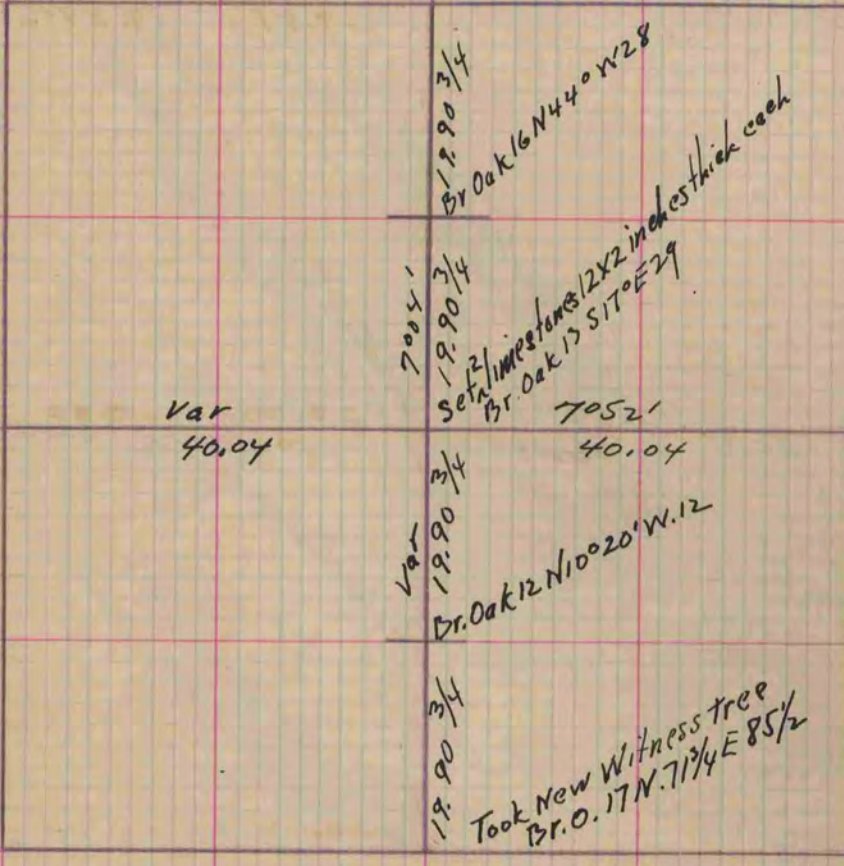 19.90 3/4
Br Oak 16 N44° W 28
7°04'
19.90 3/4
Set 2 limestones 12X2 inches thick each
Br. Oak 13 S17° E 29
Var
7°52'
40.04
40.04
Var
19.90 3/4
Br. Oak 12 N10°20' W. 12
19.90 3/4
Took New Witness tree
Br. O. 17 N. 71 3/4 E 85 1/2